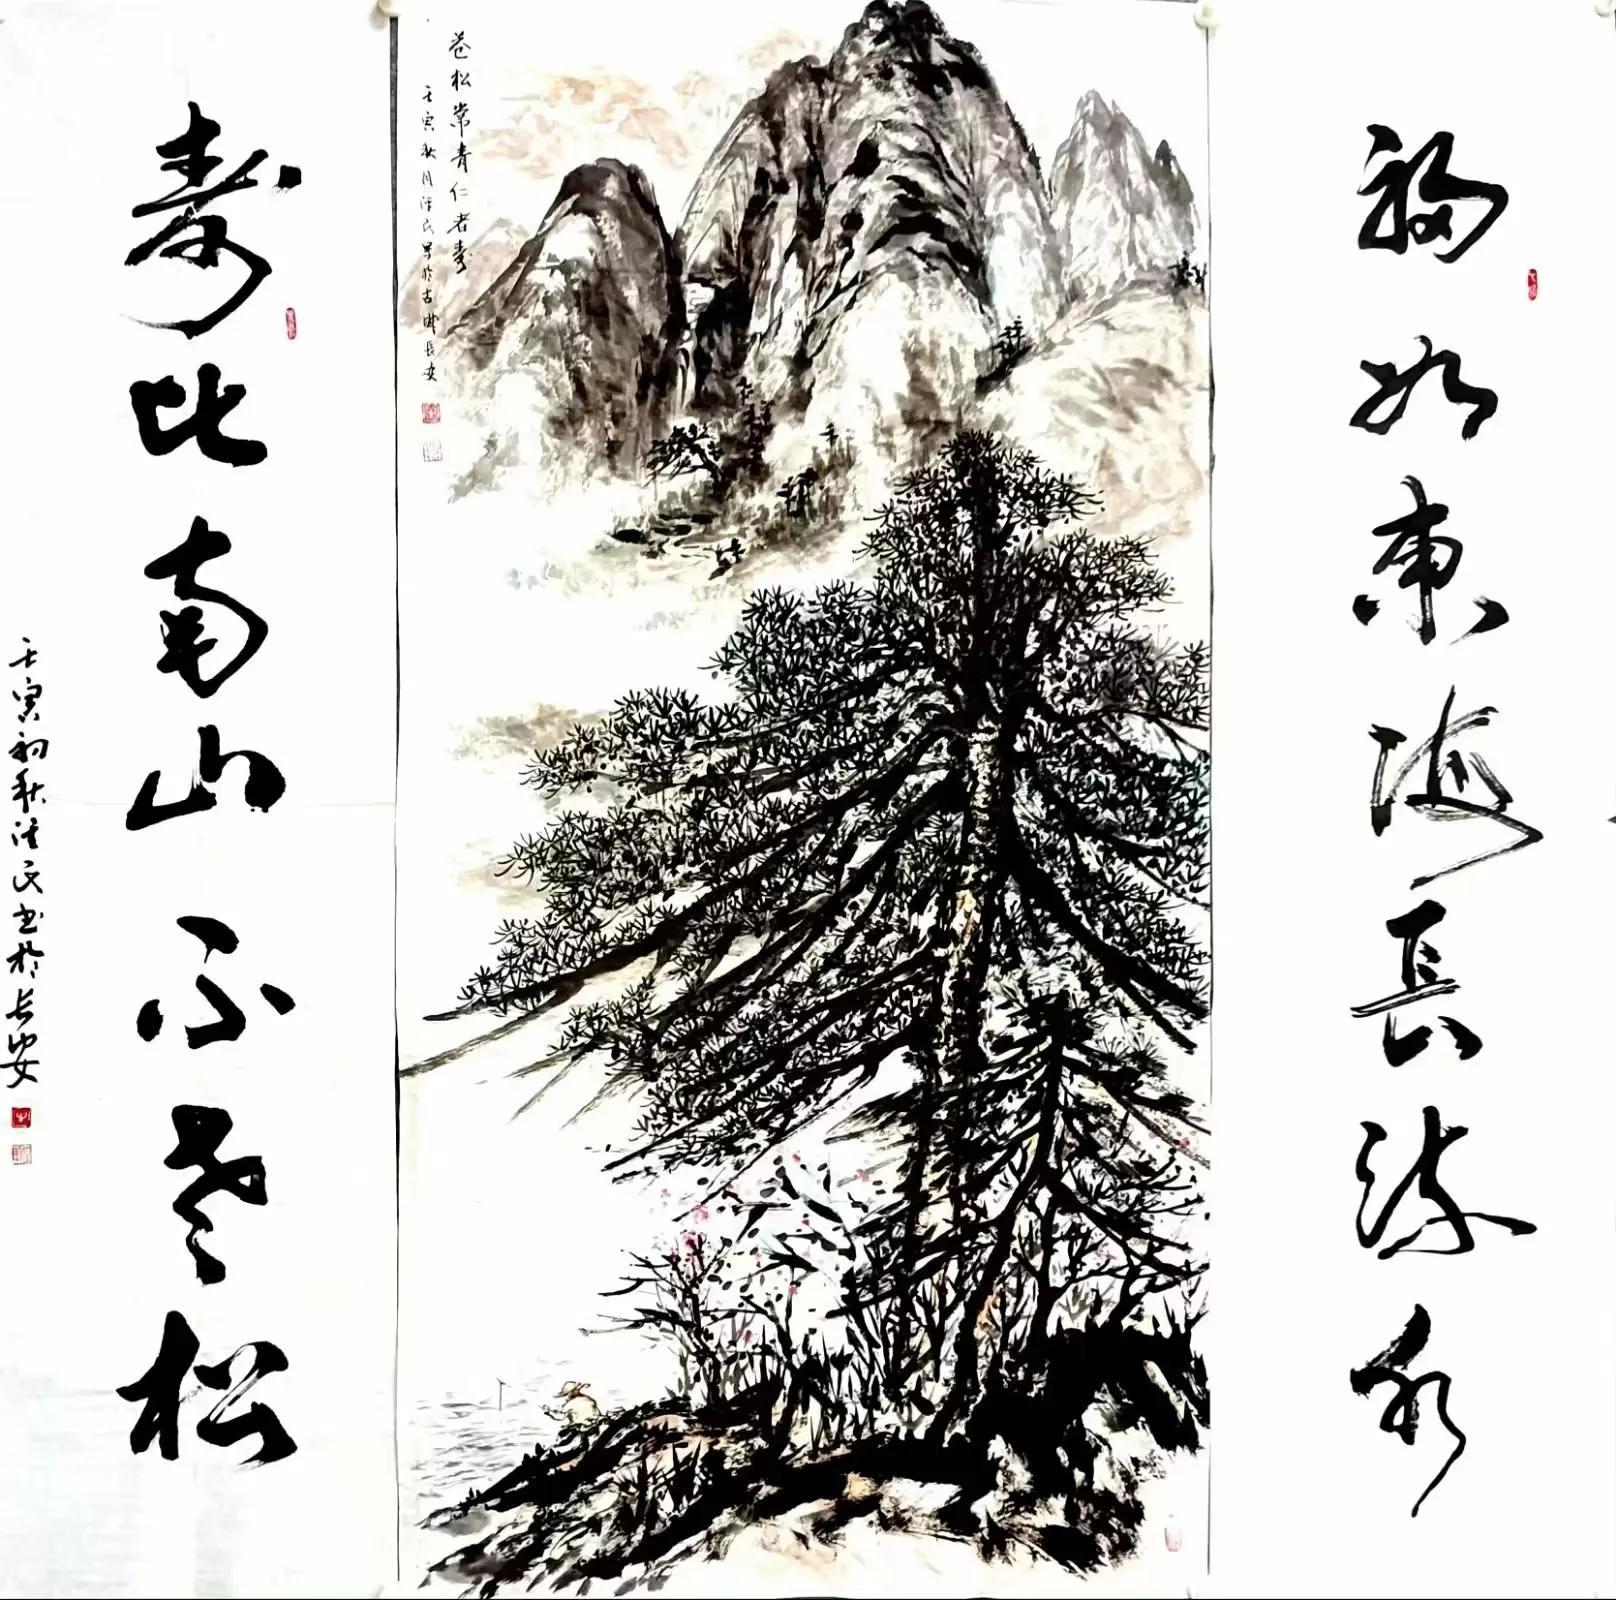 福如東海長流水
蒼松常青仁者寿
壬寅秋月 民写於古都長安
寿比南山不老松
壬寅初秋 民书於长安